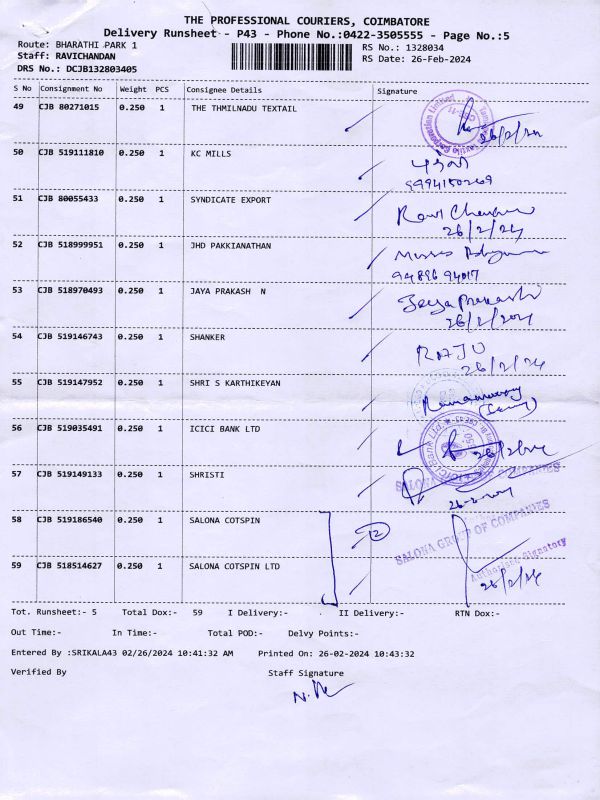 THE PROFESSIONAL COURIERS, COIMBATORE
Delivery Runsheet - P43 - Phone No.:0422-3505555 - Page No.:5
Route: BHARATHI PARK 1 RS No.: 1328034
Staff: RAVICHANDAN RS Date: 26-Feb-2024
DRS No.: DCJB132803405
S No Consignment No Weight PCS Consignee Details Signature
49 CJB 80271015 0.250 1 THE THMILNADU TEXTAIL
26/2/24
50 CJB 519111810 0.250 1 KC MILLS
51 CJB 80055433 0.250 1 SYNDICATE EXPORT
26/2/24
52 CJB 518999951 0.250 1 JHD PAKKIANATHAN
94896 94017
53 CJB 518970493 0.250 1 JAYA PRAKASH N Jeya Prakash
26/2/2024
54 CJB 519146743 0.250 1 SHANKER RAJU
26/2/24
55 CJB 519147952 0.250 1 SHRI S KARTHIKEYAN
56 CJB 519035491 0.250 1 ICICI BANK LTD
57 CJB 519149133 0.250 1 SHRISTI
SALONA GROUP OF COMPANIES
58 CJB 519186540 0.250 1 SALONA COTSPIN 2
SALONA GROUP OF COMPANIES
Authorised Signatory
59 CJB 518514627 0.250 1 SALONA COTSPIN LTD
26/2/24
Tot. Runsheet:- 5 Total Dox:- 59 I Delivery:- II Delivery:- RTN Dox:-
Out Time:- In Time:- Total POD:- Delvy Points:-
Entered By :SRIKALA43 02/26/2024 10:41:32 AM Printed On: 26-02-2024 10:43:32
Verified By Staff Signature